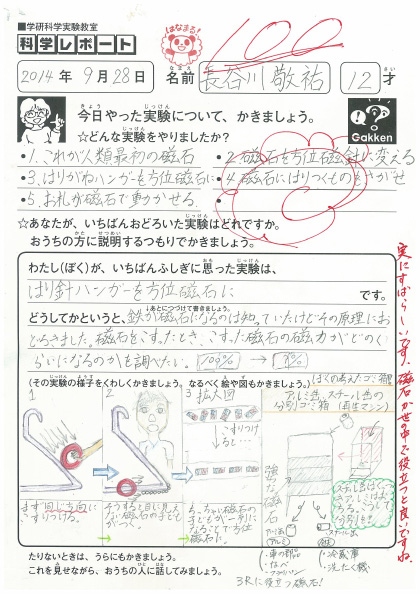 ■学研科学実験教室
科学レポート
はなまる!
100
2014年 9月 28日
なまえ
名前 長谷川 敬祐
さい
12 才
きょう じっけん
今日やった実験について、かきましょう。
☆どんな実験をやりましたか?
Gakken
・1.これが人類最初の磁石
・2.磁石を方位磁針に変える
・3.はりがねハンガーを方位磁石に
・4.磁石にはりつくものをさがせ
・5.お札が磁石で動かせる
☆あなたが、いちばんおどろいた実験はどれですか。
おうちの方に説明するつもりでかきましょう。
わたし(ぼく)が、いちばんふしぎに思った実験は、
はり針ハンガーを方位磁石に です。
↓あとにつづけて書きましょう。
どうしてかというと、鉄が磁石になるのは知っていたけどその原理にお
どろきました。磁石をこすったとき、こすった磁石の磁力がどのく
らいになるのかも調べたい。 100% → ?%
(その実験の様子をくわしくかきましょう。なるべく絵や図もかきましょう。)
ぼくの考えたゴミ箱
1
2
3 拡大図
こすりつけ
ると…
アルミ缶、スチール缶の
分別ゴミ箱(再生マシン)
まず同じ方向に
こすりつける。
そうすると目に見え
ない磁石の子どもが
つく。
ちっちゃい磁石の
子どもが一列に
なることで方位
磁石に。
強力磁石
アルミ
鉄
スチール缶
・車の部品
・なべ
・冷蔵庫
・洗たく機
3Rに役立つ磁石!
たりないときは、うらにもかきましょう。
これを見せながら、おうちの人に話してみましょう。
実にすばらしいです。磁石が世の中で役立つと良いですね。